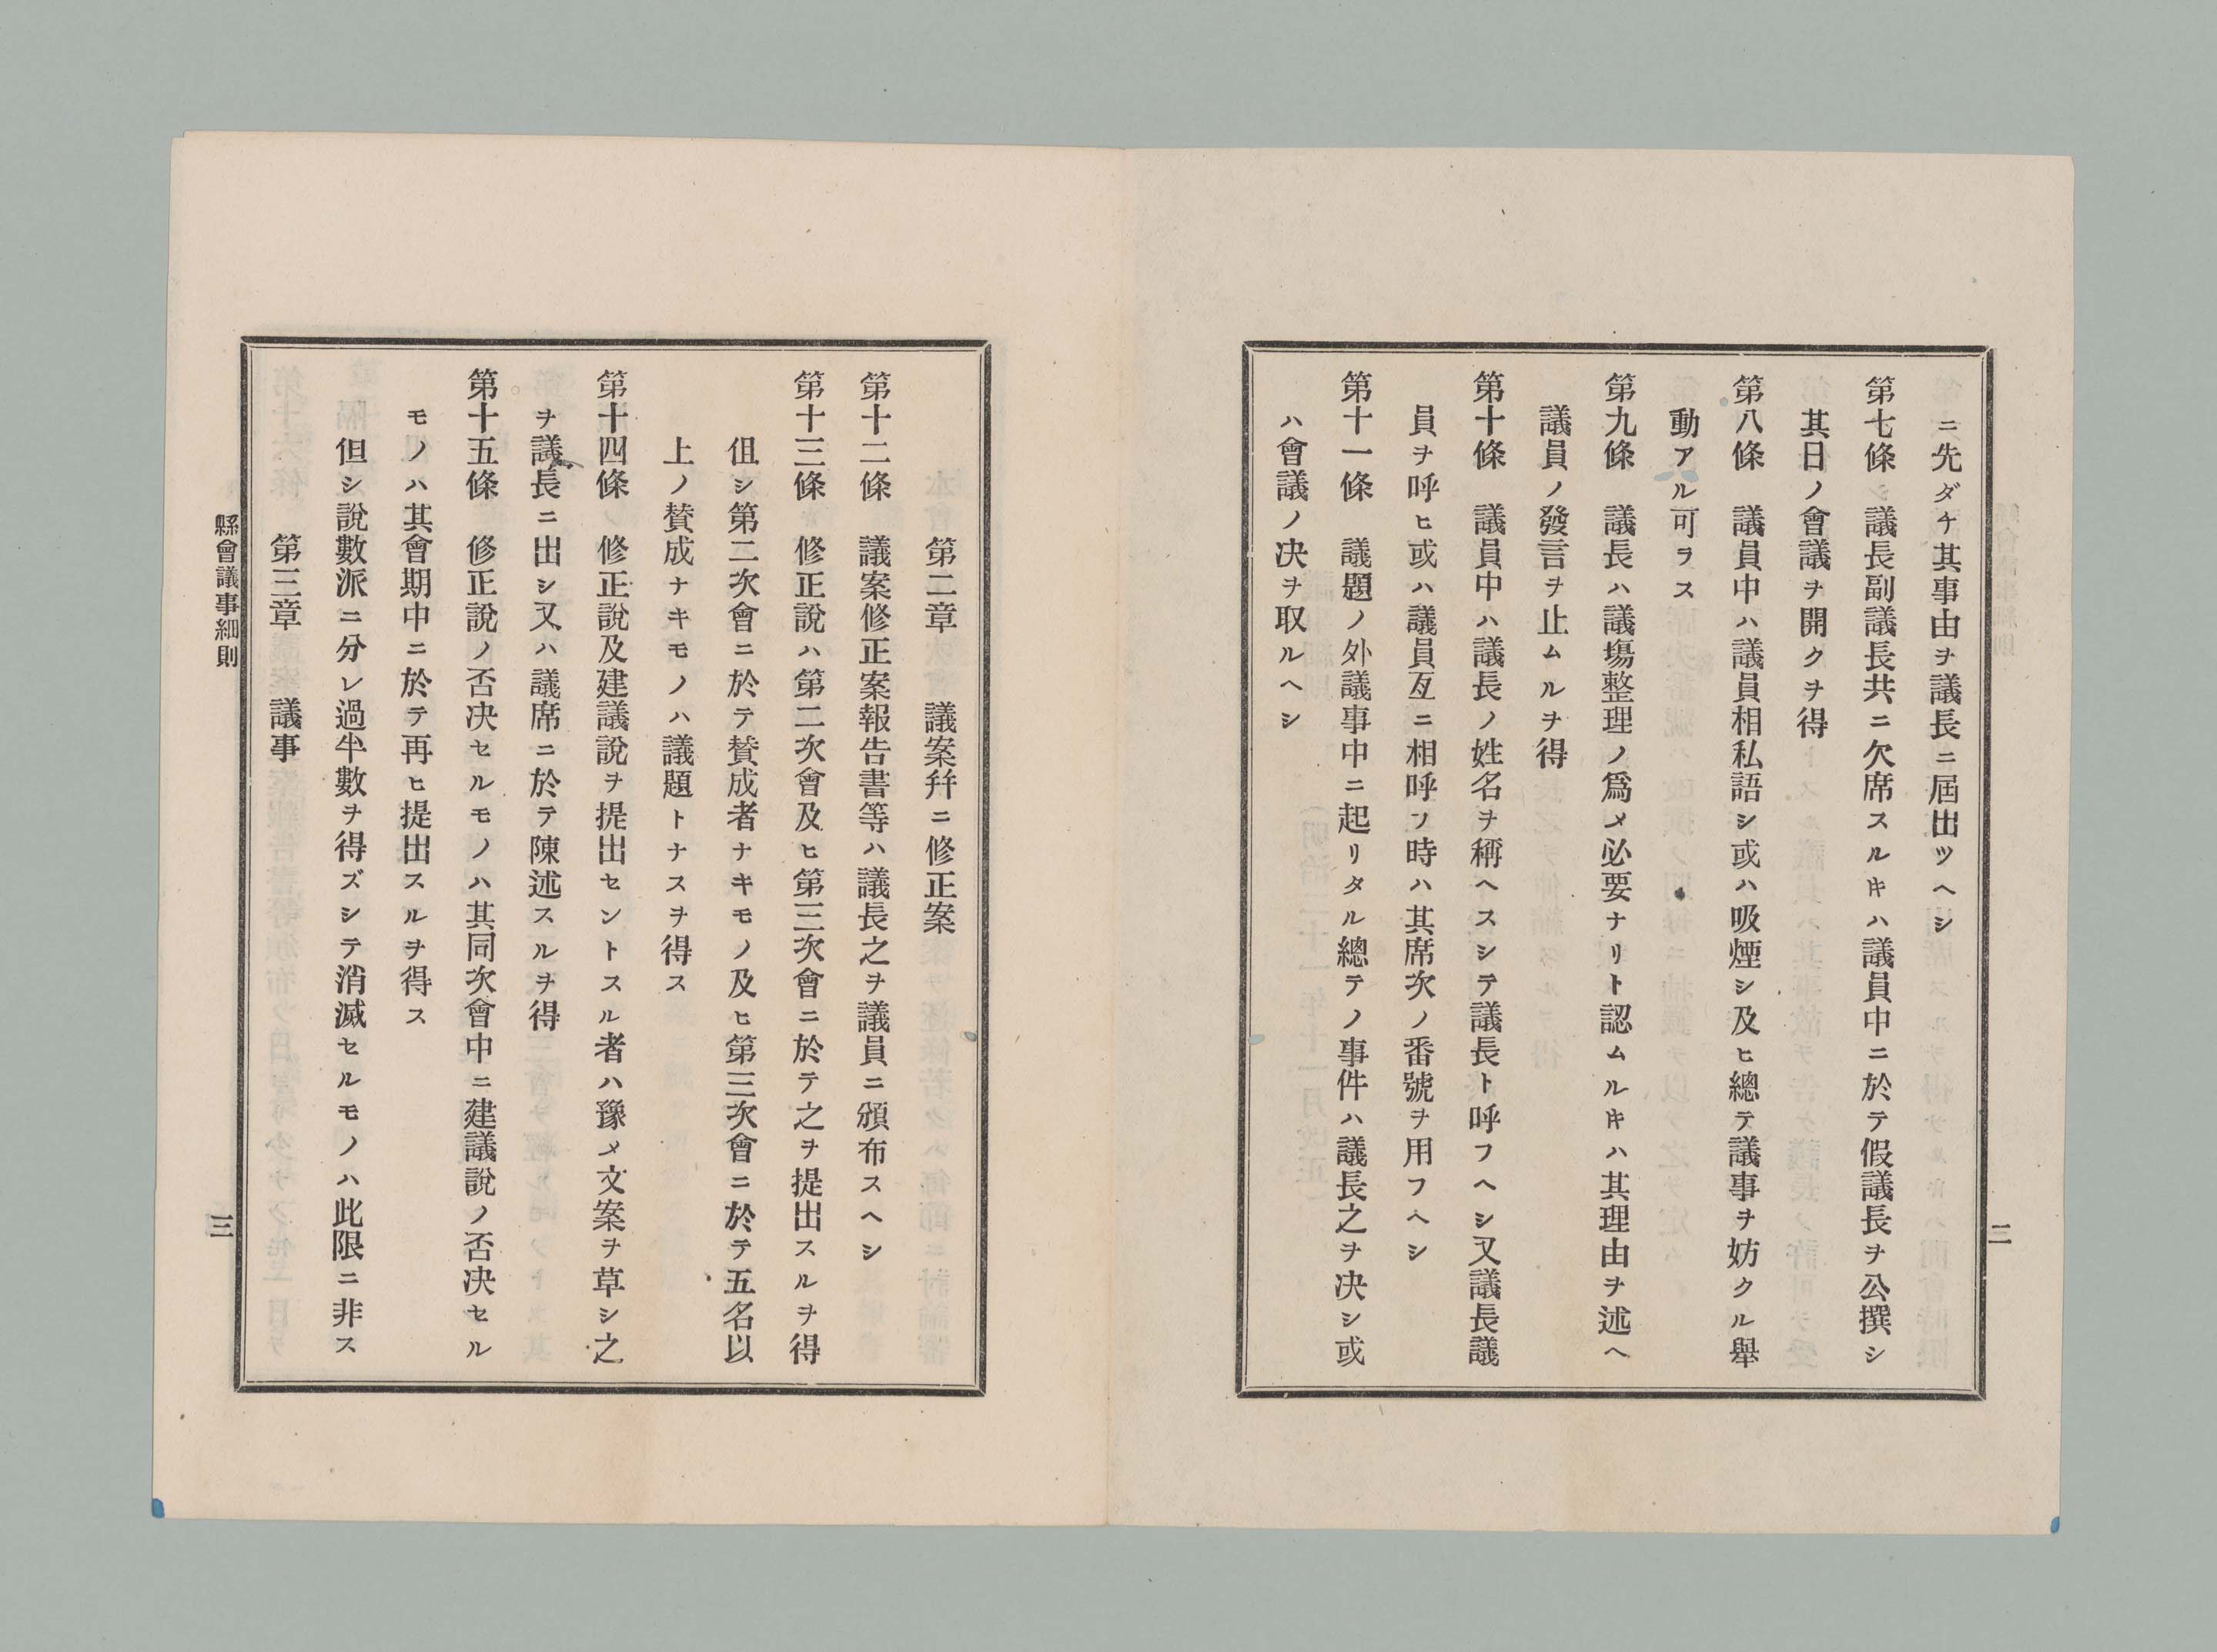 ニ先ダチ其事由ヲ議長ニ屆出ツヘシ
第七條　議長副議長共ニ欠席スルキハ議員中ニ於テ假議長ヲ公撰シ
其日ノ會議ヲ開クヲ得
第八條　議員中ハ議員相私語シ或ハ吸煙シ及ヒ總テ議事ヲ妨クル舉
動アル可ラス
第九條　議長ハ議塲整理ノ爲メ必要ナリト認ムルキハ其理由ヲ述ヘ
議員ノ發言ヲ止ムルヲ得
第十條　議員中ハ議長ノ姓名ヲ稱ヘスシテ議長ト呼フヘシ又議長議
員ヲ呼ヒ或ハ議員互ニ相呼フ時ハ其席次ノ番號ヲ用フヘシ
第十一條　議題ノ外議事中ニ起リタル總テノ事件ハ議長之ヲ决シ或
ハ會議ノ决ヲ取ルヘシ
二
第二章　議案幷ニ修正案
第十二條　議案修正案報告書等ハ議長之ヲ議員ニ頒布スヘシ
第十三條　修正說ハ第二次會及ヒ第三次會ニ於テ之ヲ提出スルヲ得
伹シ第二次會ニ於テ賛成者ナキモノ及ヒ第三次會ニ於テ五名以
上ノ賛成ナキモノハ議題トナスヲ得ス
第十四條　修正說及建議說ヲ提出セントスル者ハ豫メ文案ヲ草シ之
ヲ議長ニ出シ又ハ議席ニ於テ陳述スルヲ得
第十五條　修正說ノ否决セルモノハ其同次會中ニ建議說ノ否决セル
モノハ其會期中ニ於テ再ヒ提出スルヲ得ス
但シ說數派ニ分レ過半數ヲ得ズシテ消滅セルモノハ此限ニ非ス
第三章　議事
縣會議事細則
三